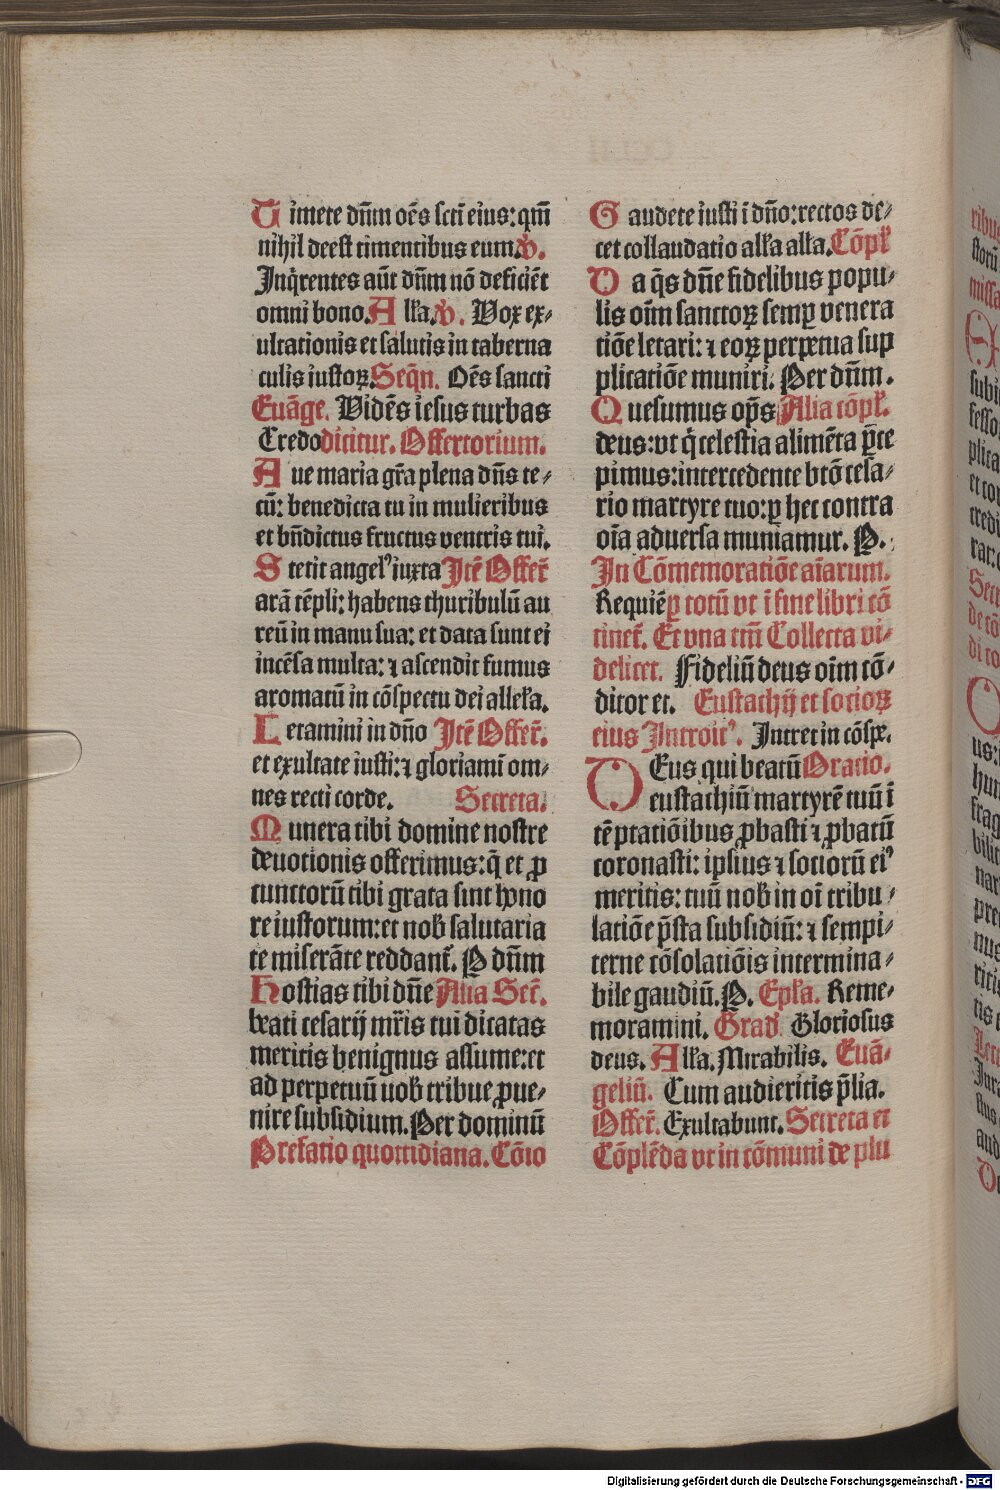 Timete dñm oẽs scti eius: qm̃
nihil deest timentibus eum. V̉.
Inq̃rentes aũt dñm nõ deficiẽt
omni bono. Alĺa. V̉. Vox ex⸗
ultationis et salutis in taberna
culis iustoꝝ. Seq̃n. Oẽs sancti
Euãge. Videns iesus turbas
Credo dicitur. Offertorium.
Aue maria gr̃a plena dñs te⸗
cũ: benedicta tu in mulieribus
et bñdictus fructus ventris tui.
Stetit angelꝰ iuxta Itẽ Offer̃
arã tẽpli: habens thuribulũ au
reũ in manu sua: et data sunt ei
incẽsa multa: ⁊ ascendit fumus
aromatũ in cõspectu dei allel̃a.
Letamini in dño Itẽ Offer̃.
et exultate iusti: ⁊ gloriamĩ om⸗
nes recti corde. Secreta.
Munera tibi domine nostre
deuotionis offerimus: q̃ et ꝓ
cunctorũ tibi grata sint hono
re iustorum: et nob̃ salutaria
te miserãte reddant̃. P dñm
Hostias tibi dñe Alia Secr̃.
beati cesarij mr̃is tui dicatas
meritis benignus assume: et
ad perpetuũ nob̃ tribue ꝓue⸗
nire subsidium. Per dominũ
Prefatio quottidiana. Cõio
Gaudete iusti ĩ dño: rectos de⸗
cet collaudatio alĺa alĺa. Cõpĺ
Da q̃s dñe fidelibus popu⸗
lis oĩm sanctoꝝ semꝑ venera
tiõe letari: ⁊ eoꝝ perpetua sup
plicatiõe muniri. Per dñm.
Quesumus op̃s Alia cõpĺ.
deus: vt q̃ celestia alimẽta p̃ce
pimus: intercedente btõ cesa⸗
rio martyre tuo: ꝑ hec contra
oĩa aduersa muniamur. P.
In Cõmemoratiõe aĩarum.
Requiẽ ꝑ totũ vt ĩ fine libri cõ
tinet̃. Et vna tm̃ Collecta vi⸗
delicet. Fideliũ deus oĩm cõ⸗
ditor et. Eustachij et socioꝝ
eius Introitꝰ. Intret in cõspe.
DEus qui beatũ Oratio.
eustachiũ martyrẽ tuũ ĩ
tẽptatiõibus ꝓbasti ⁊ ꝓbatũ
coronasti: ipsius ⁊ sociorũ eiꝰ
meritis: tuũ nob̃ in oĩ tribu⸗
latiõe p̃sta subsidiũ: ⁊ sempi⸗
terne cõsolatiõis intermina⸗
bile gaudiũ. P. Epĺa. Reme⸗
moramini. Grad̃. Gloriosus
deus. Alĺa. Mirabilis. Euã⸗
geliũ. Cum audieritis p̃lia.
Offer̃. Exultabunt. Secreta et
Cõplẽda vt in cõmuni de plu
Digitalisierung gefördert durch die Deutsche Forschungsgemeinschaft - DFG